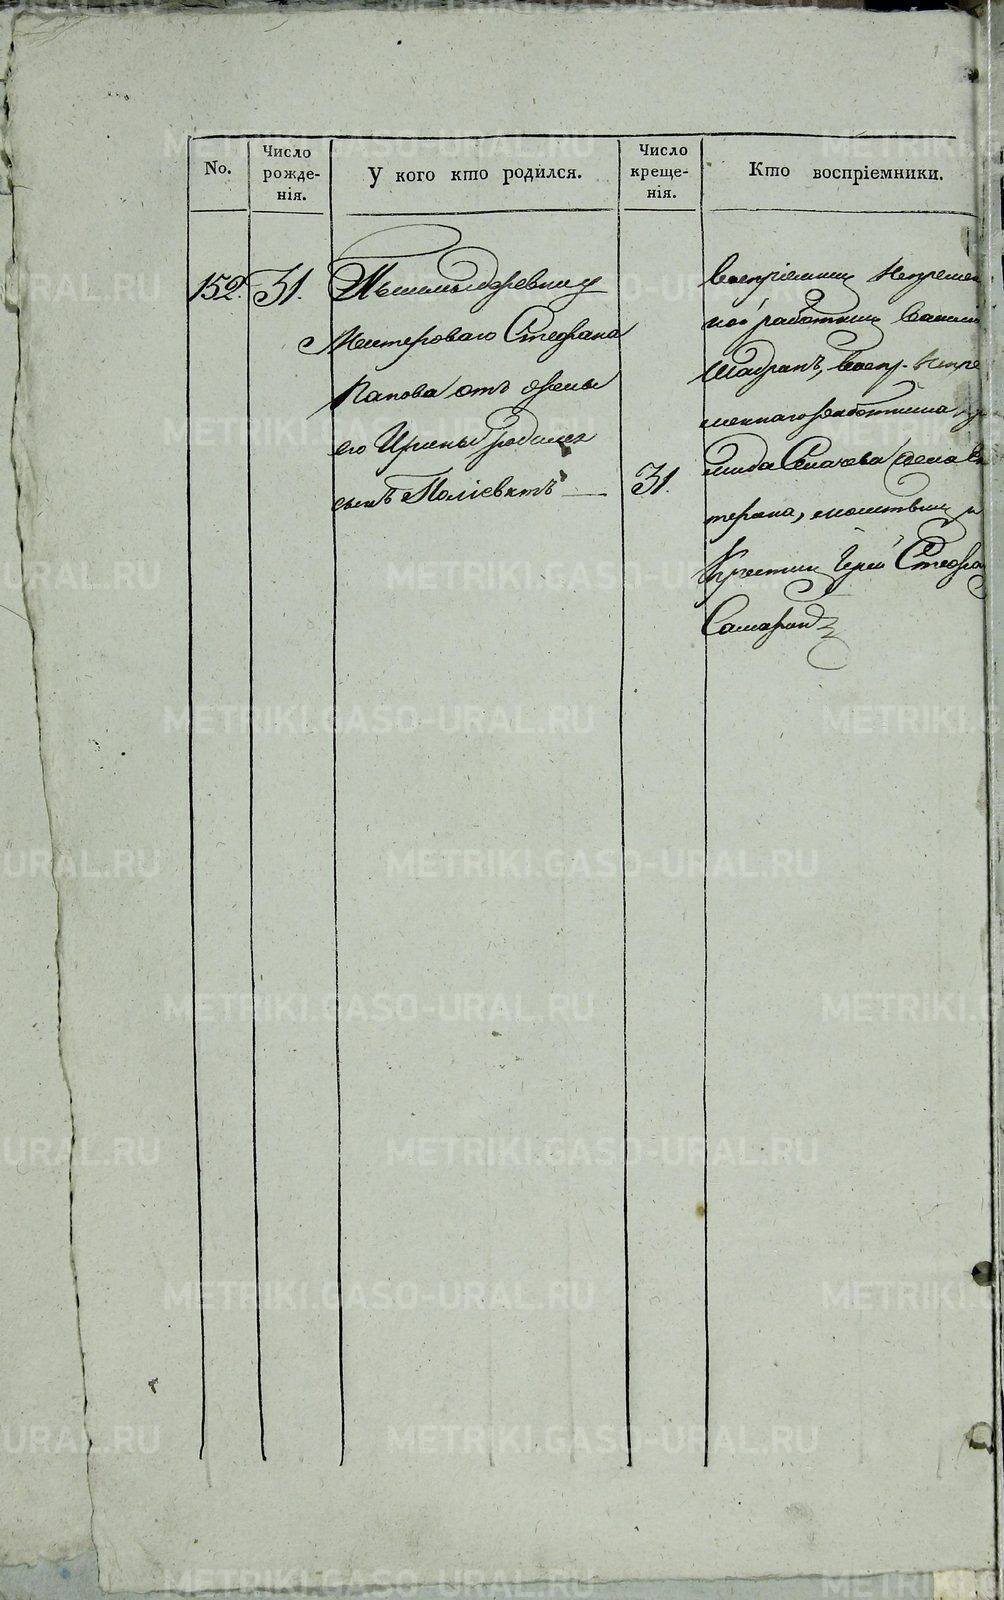 No.
Число рожде-нія.
У кого кто родился.
Число креще-нія.
Кто воспріемники.
152. 31. Пышмы деревни у
Мастероваго Стефана
Попова отъ жены
его Ирины родился
сынъ Поліевктъ — 31.
воспріемник Непремен
ной работник Васил
Шадринъ, воспр. Непре
меннаго работника
жена Ека
терина, молитвил и
Крестил Іерей Стефан
METRIKI.GASO-URAL.RU